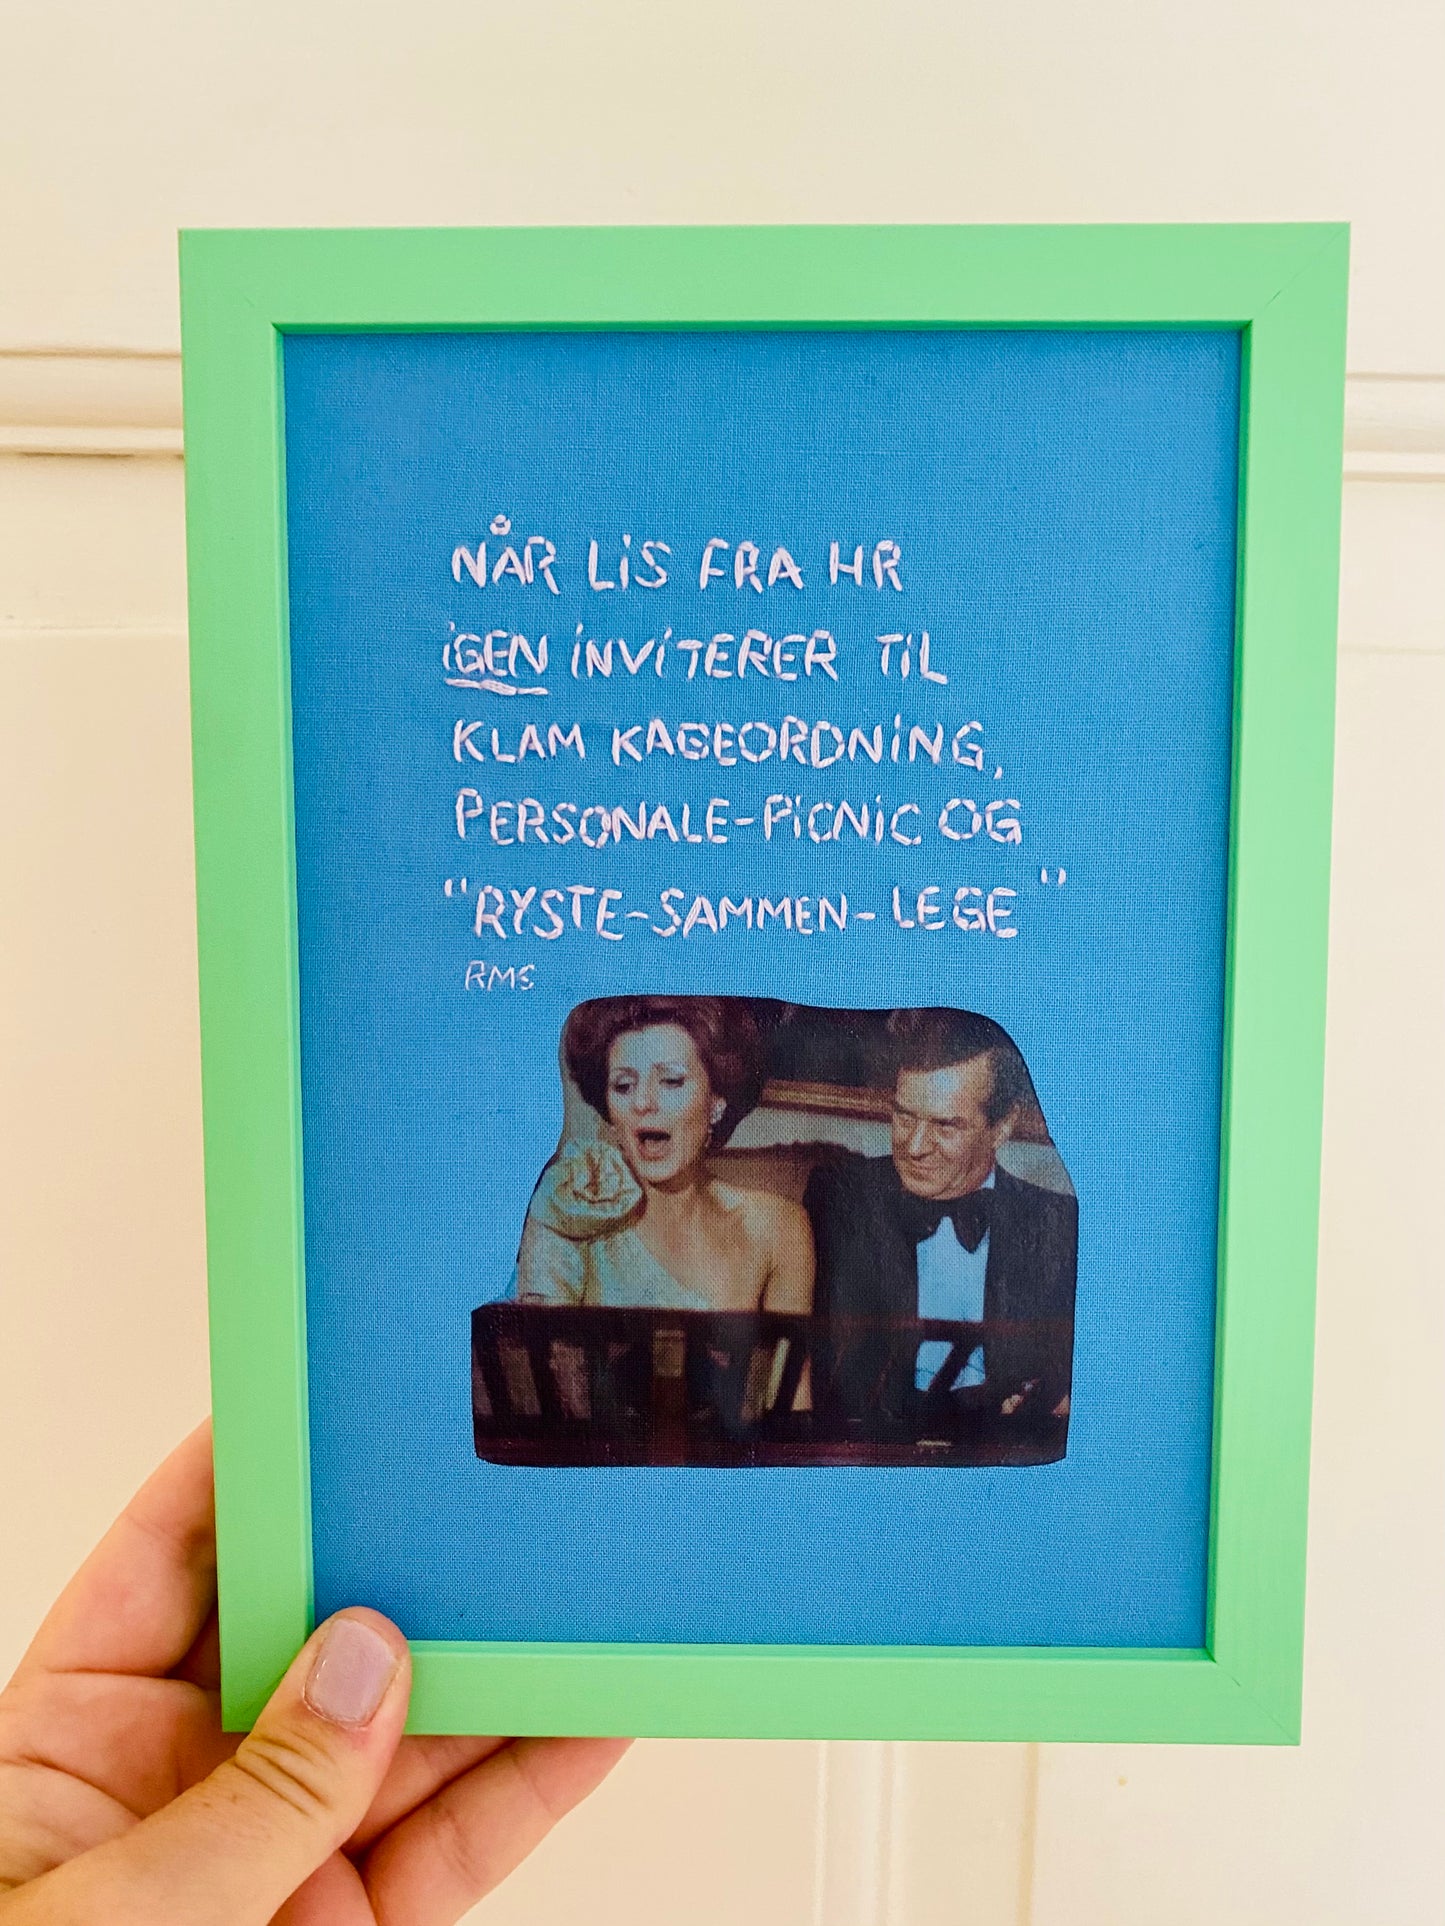 NÅR LiS FRA HR
iGEN iNViTERER TiL
KLAM KAGEORDNiNG,
PERSONALE-PiCNiC OG
"RYSTE-SAMMEN-LEGE"
RMS